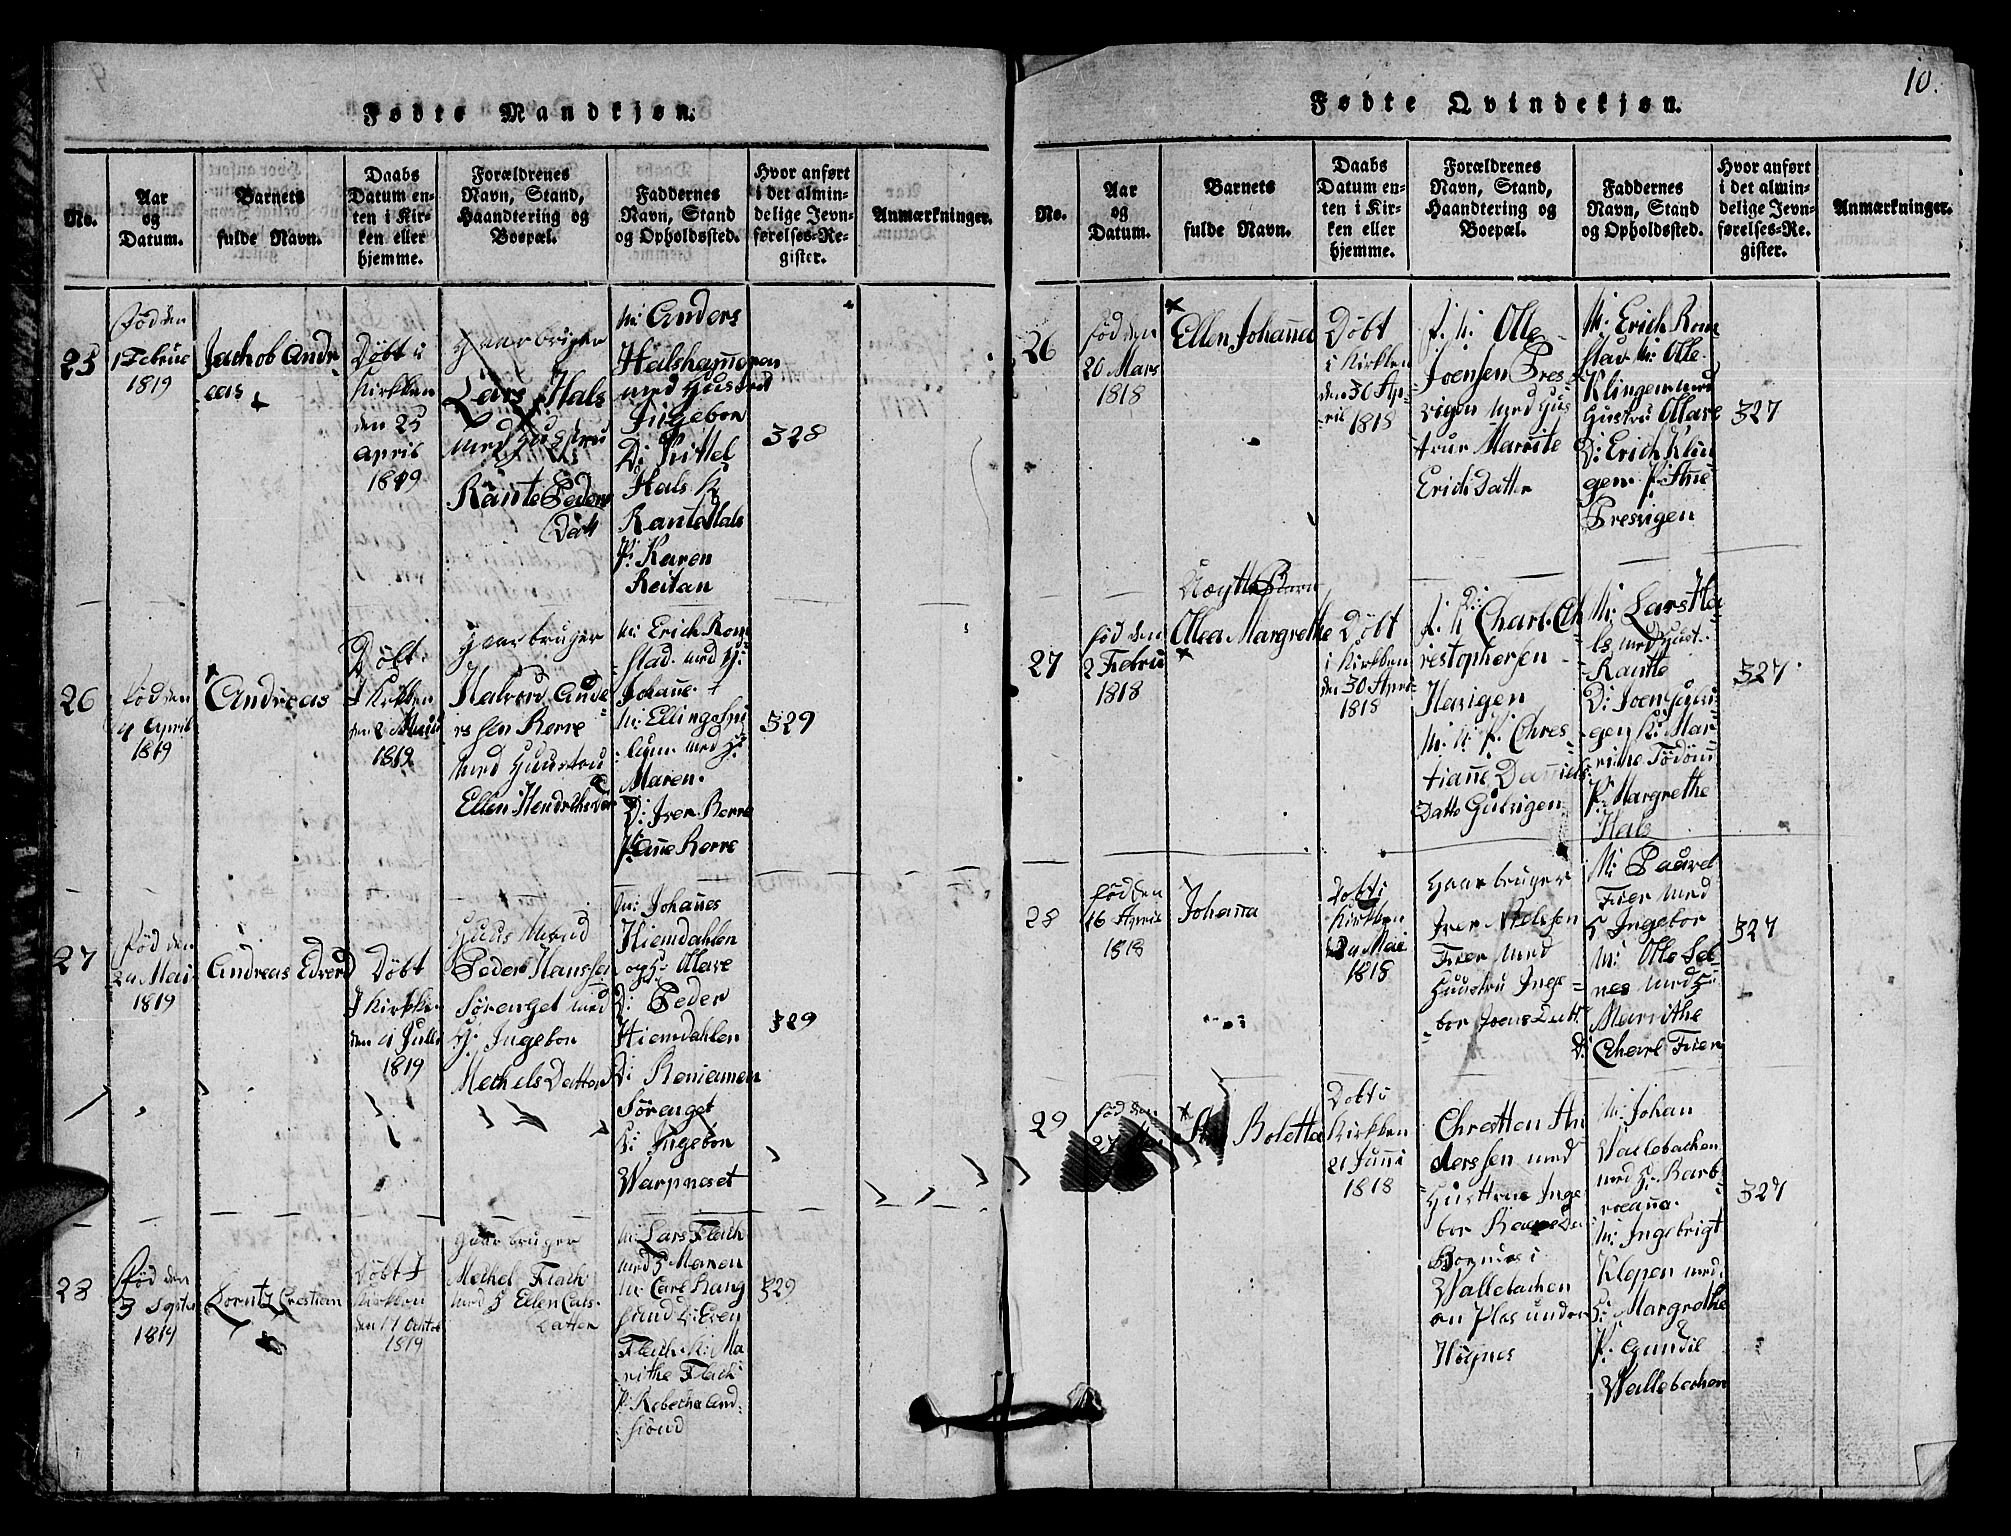 Fødte Mandkjøn.
No.
Aar
og
Datum.
Barnets
fulde Navn.
Daabs
Datum en-
ten i Kir-
ken eller
hjemme.
Forældrenes
Navn, Stand,
Haandtering og
Boepæl.
Faddernes
Navn, Stand
og Opholdssted.
Hvor anført
i det almin-
delige Jevn-
førelses-Re-
gister.
Anmærkninger.
25
fød den
1 Februe
1819
Jachob Andr
eas
Døbt i
Kirkken
den 25
April
1819
Gaarbruger
Lars Hals
med Hustru
Rante Peders
Datt
M: Anders
Halshameren
med Hustru
Ingebor
D: Kittel
Hals K
Rante Hals
P: Karen
Reitan
328
26
fød den
4 April
1819
Andreas
Døbt
I Kirkken
den 2 Maii
1819
Gaarbruger
Halvord Ande
rs sen Berre
med Huustru
Ellen Hendrichs Dat
M: Erich Rom
stad med H:
Johanne
M: Elling
med H:
Maren.
D: Iver Berre
P: Ane Berre
329
27
fød den
24 Mai
1819
Andreas Edverd
Døbt
I Kirkke
den 4 Julli
1819
Huus Mand
Peder Hanssen
Sørenget med
H: Ingebor
Mechels Datter
M: Johanes
Hiemdahlen
og H: Olave
D: Peder
Hiemdahlen
D: Beniamen
Sørenget
K: Ingebor
Warpneset
329
28
fød den
3 Septer
1819
Lorntz Crestian
Døbt I
Kirkken
den 17 October
1819
Gaarbruger
Mechel Flach
med H Ellen Cals
Datter
M: Lars Flach
med H Maren
M: Carl Hang
sund D: Even
Flach K: Ma
rithe Flach
P: Rebecha Land
siønd
329
10.
Fødte Qvindekjøn.
No.
Aar
og
Datum.
Barnets
fulde Navn.
Daabs
Datum en-
ten i Kir-
ken eller
hjemme.
Forældrenes
Navn, Stand,
Haandtering og
Boepæl.
Faddernes
Navn, Stand
og Opholdssted.
Hvor anført
i det almin-
delige Jevn-
førelses-Re-
gister.
Anmærkninger.
26
fød den
20 Mars
1818
Ellen Johanna
Døbt
i Kirkken
den 30 Ap-
ril 1818
Olle
Joensen Pres
vigen med Hus
true Marrite
Erichs Datter
M: Erich Rom
stad M: Olle
Klingen med
Hustru Olave
D: Erich Klin
gen P: Ane
Presvigen
327
27
fød den
2 Febru
1818
Uægtte Barn
Ollea Margrethe
Døbt
i Kirkken
den 30 Apri
1818
Charl. Ch
restophersen
Havigen
Chres
tianne Danniels
Datte Gulvigen
M: Lars Ha
ls med Hust.
Rantte
D: Joen
gen K: Mar
rithe
P: Margrethe
Hals
327
28
fød den
16 Aprill
1818
Johanna
Døbt i
Kirkken
24 Mai
1818
Gaarbruger
Iver
Fier med
Huustru Inge
bor Joens Datt
M: Paavel
Fier med
H Ingebor
M: Olle Set
nes med H:
Marrithe
D: Charl Fier
327
29
fød den
27
Boletta
Døbt i
Kirkken
21 Junni
1818
Chrestten An
derssen med
Husttrue Inge
bor
i
Wallebachen
en Plas under
Høgnes
M: Johan
Wallebachen
med H: Barb
roeanna.
M: Ingebrigt
Kleppen med
H: Margrethe
P: Gundil
Wallebachen
327